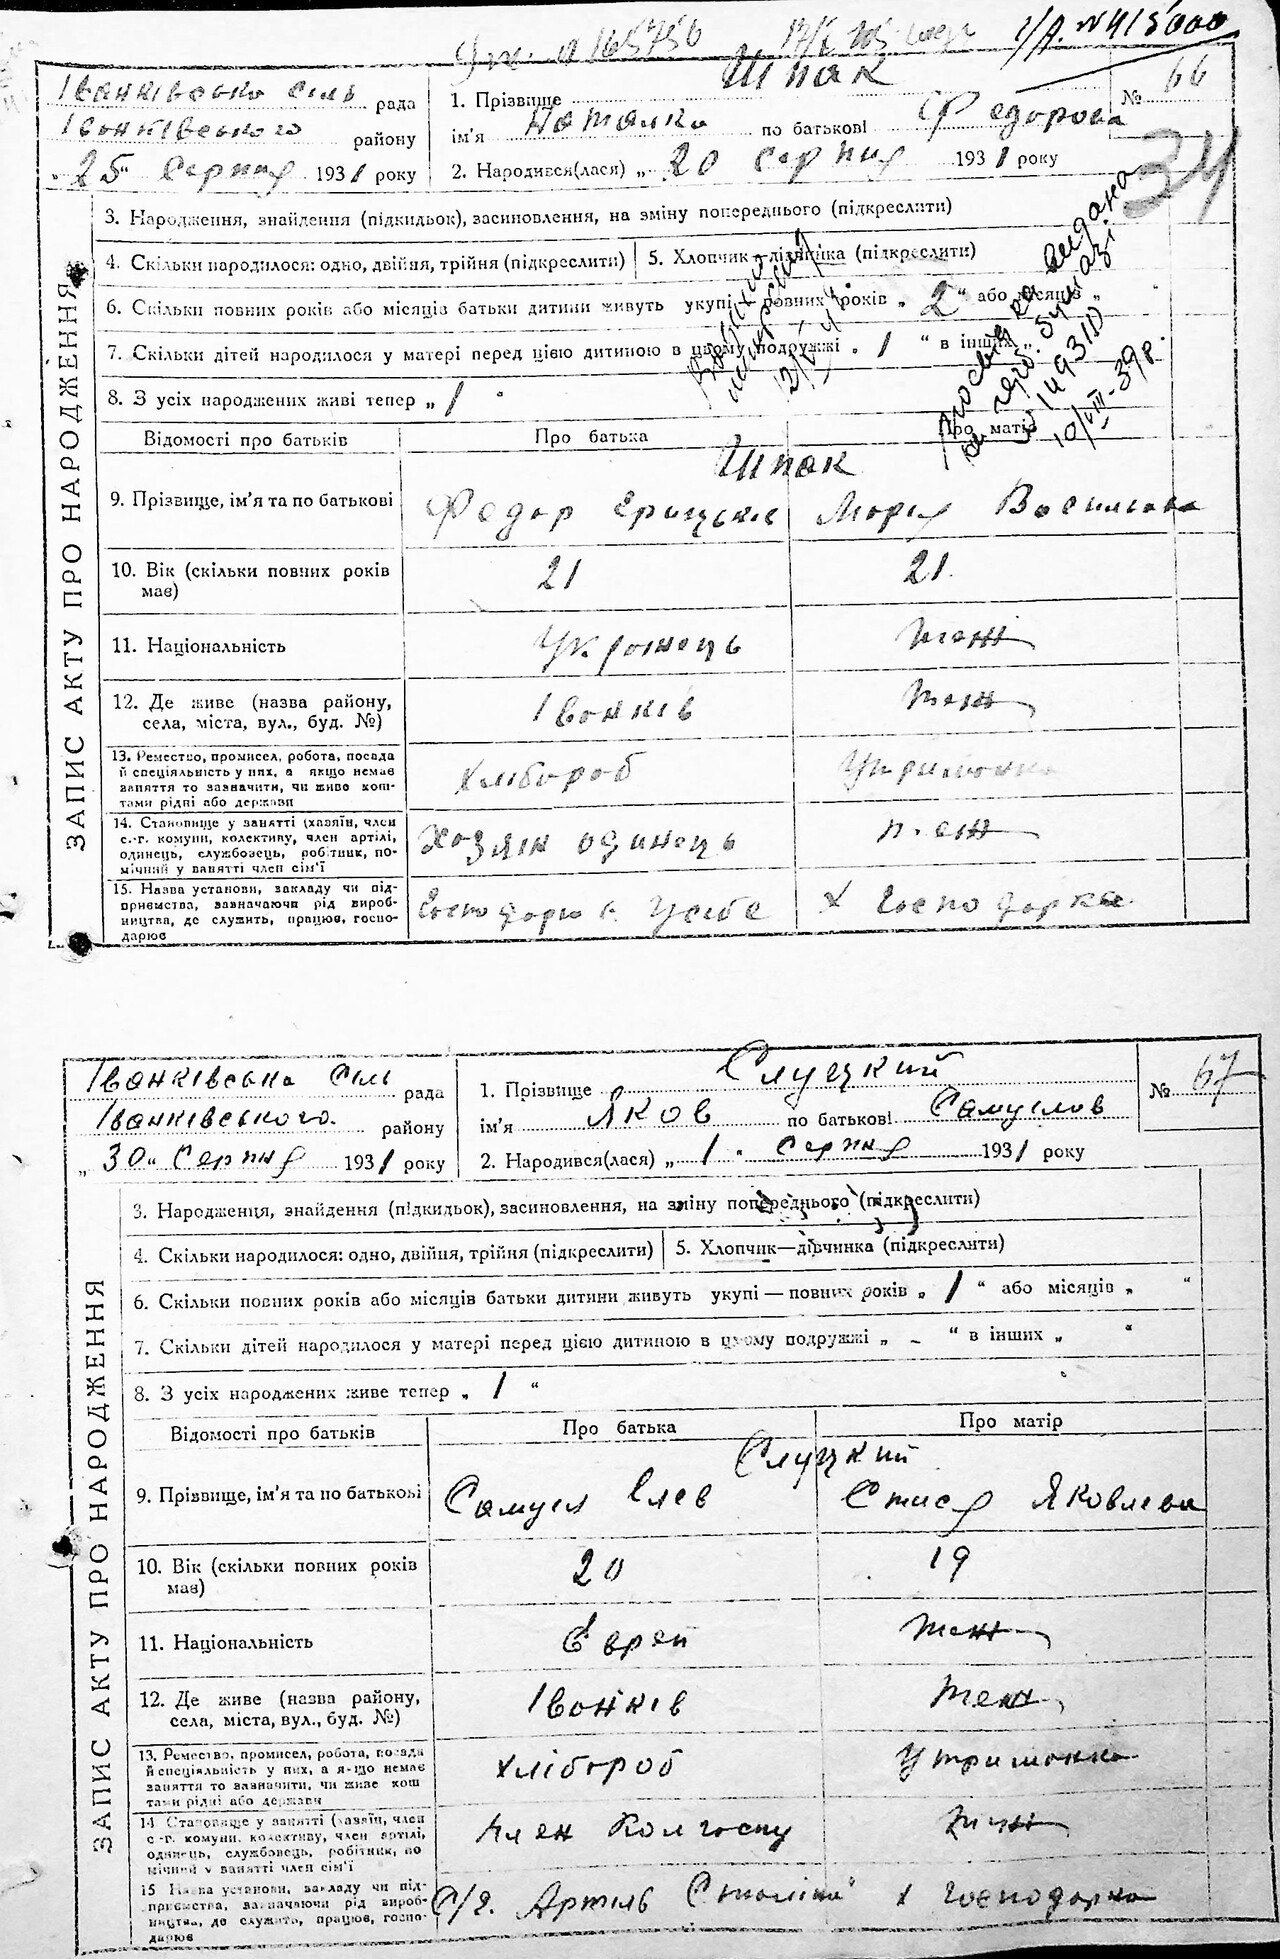 № 415000
Іванківська сіль рада
Іванківського району
"25" Серпня 1931 року
1. Прізвище Шпак
ім'я Наталка по батькові Федорова
2. Народився(лася) „20 Серпня 1931 року
№ 66
34
3. Народження, знайдення (підкидьок), засиновлення, на зміну попереднього (підкреслити)
4. Скільки народилося: одно, двійня, трійня (підкреслити) 5. Хлопчик—дівчинка (підкреслити)
6. Скільки повних років або місяців батьки дитини живуть укупі — повних років „2“ або місяців „
7. Скільки дітей народилося у матері перед цією дитиною в цьому подружжі „1“ в інших „
8. З усіх народжених живі тепер „1“
10/VIII-39р.
Відомості про батьків Про батька Про матір
Шпак
9. Прізвище, ім'я та по батькові Федор Марія Васильовна
10. Вік (скільки повних років має) 21 21
11. Національність Українець теж
12. Де живе (назва району, села, міста, вул., буд. №) Іванків теж
13. Ремество, промисел, робота, посада й спеціяльність у них, а якщо немає заняття то зазначити, чи живе коштами рідні або держави Хлібороб Утриманка
14. Становище у занятті (хазяїн, член с.-г. комуни, колективу, член артілі, одинець, службовець, робітник, помічний у занятті член сім'ї Хозяін одинець теж
15. Назва установи, закладу чи підприємства, зазначаючи рід виробництва, де служить, працює, господарює Господарю в у себе х Господарка
ЗАПИС АКТУ ПРО НАРОДЖЕННЯ
Іванківська сіль рада
Іванківського району
„30“ Серпня 1931 року
1. Прізвище Слуцкий
ім'я Яков по батькові Самуілов
2. Народився(лася) „1“ Серпня 1931 року
№ 67
3. Народження, знайдення (підкидьок), засиновлення, на зміну попереднього (підкреслити)
4. Скільки народилося: одно, двійня, трійня (підкреслити) 5. Хлопчик—дівчинка (підкреслити)
6. Скільки повних років або місяців батьки дитини живуть укупі — повних років „1“ або місяців „ “
7. Скільки дітей народилося у матері перед цією дитиною в цьому подружжі „ – “ в інших „ “
8. З усіх народжених живе тепер „1“
Відомості про батьків Про батька Про матір
Слуцкий
9. Прізвище, ім'я та по батькові Самуил Елев Яковлева
10. Вік (скільки повних років має) 20 19
11. Національність Єврей теж
12. Де живе (назва району, села, міста, вул., буд. №) Іванків теж
13. Ремество, промисел, робота, посада й спеціяльність у них, а якщо немає заняття то зазначити, чи живе коштами рідні або держави Хлібороб Утриманка
14 Становище у занятті (хазяїн, член с-г. комуни, колективу, член артілі, одинець, службовець, робітник, помічний у занятті член сім'ї Член Колгоспу теж
15 Назва установи, закладу чи підприємства, зазначаючи рід виробництва, де служить, працює, господарює С/г. Артиль х Господарка
ЗАПИС АКТУ ПРО НАРОДЖЕННЯ